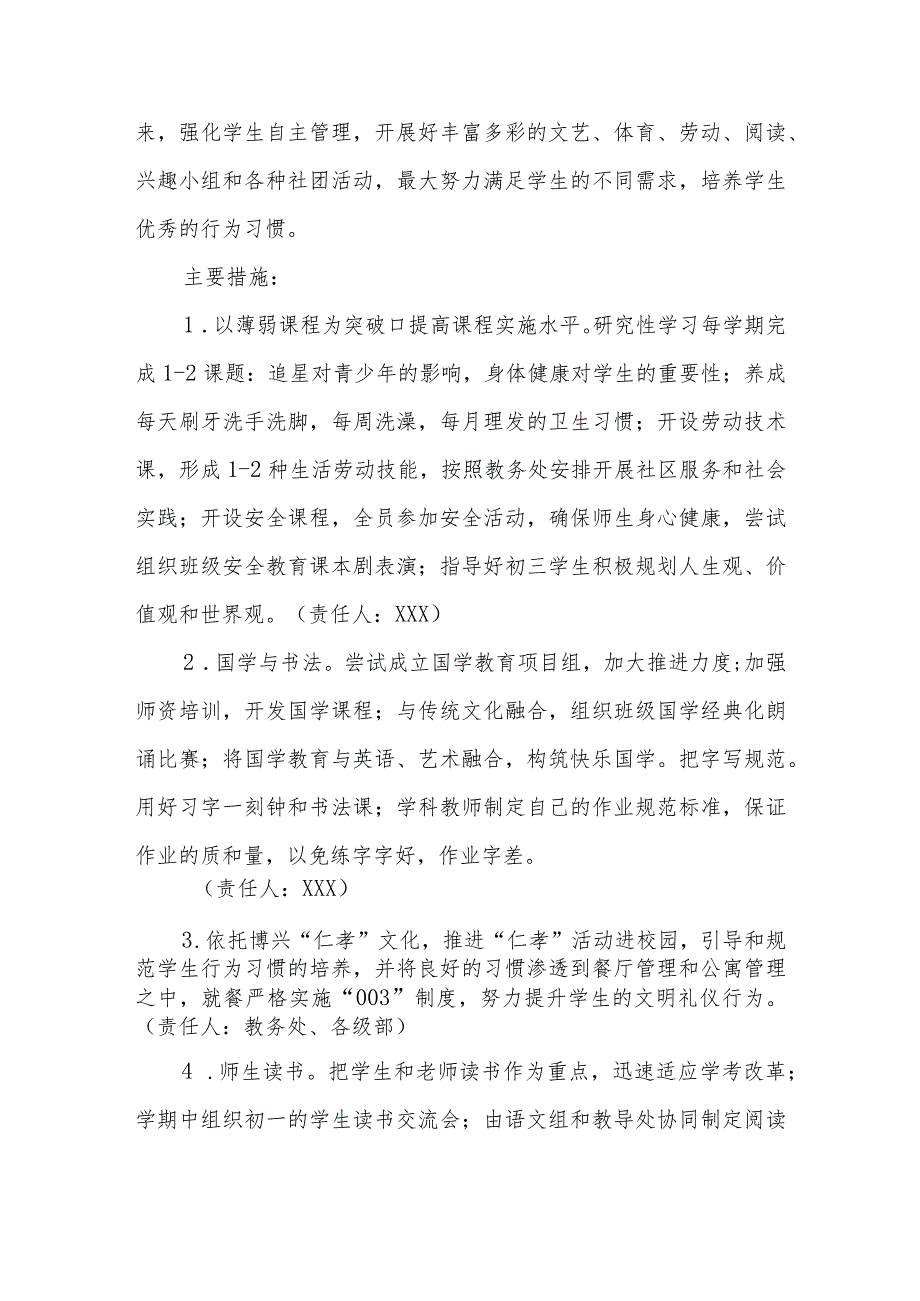 来，强化学生自主管理，开展好丰富多彩的文艺、体育、劳动、阅读、
兴趣小组和各种社团活动，最大努力满足学生的不同需求，培养学生
优秀的行为习惯。
主要措施：
1.以薄弱课程为突破口提高课程实施水平。研究性学习每学期完
成1-2课题：追星对青少年的影响，身体健康对学生的重要性；养成
每天刷牙洗手洗脚，每周洗澡，每月理发的卫生习惯；开设劳动技术
课，形成1-2种生活劳动技能，按照教务处安排开展社区服务和社会
实践；开设安全课程，全员参加安全活动，确保师生身心健康，尝试
组织班级安全教育课本剧表演；指导好初三学生积极规划人生观、价
值观和世界观。（责任人：XXX）
2.国学与书法。尝试成立国学教育项目组，加大推进力度;加强
师资培训，开发国学课程；与传统文化融合，组织班级国学经典化朗
诵比赛；将国学教育与英语、艺术融合，构筑快乐国学。把字写规范。
用好习字一刻钟和书法课；学科教师制定自己的作业规范标准，保证
作业的质和量，以免练字字好，作业字差。
（责任人：XXX）
3.依托博兴“仁孝”文化，推进“仁孝”活动进校园，引导和规
范学生行为习惯的培养，并将良好的习惯渗透到餐厅管理和公寓管理
之中，就餐严格实施“003”制度，努力提升学生的文明礼仪行为。
（责任人：教务处、各级部）
4.师生读书。把学生和老师读书作为重点，迅速适应学考改革；
学期中组织初一的学生读书交流会；由语文组和教导处协同制定阅读